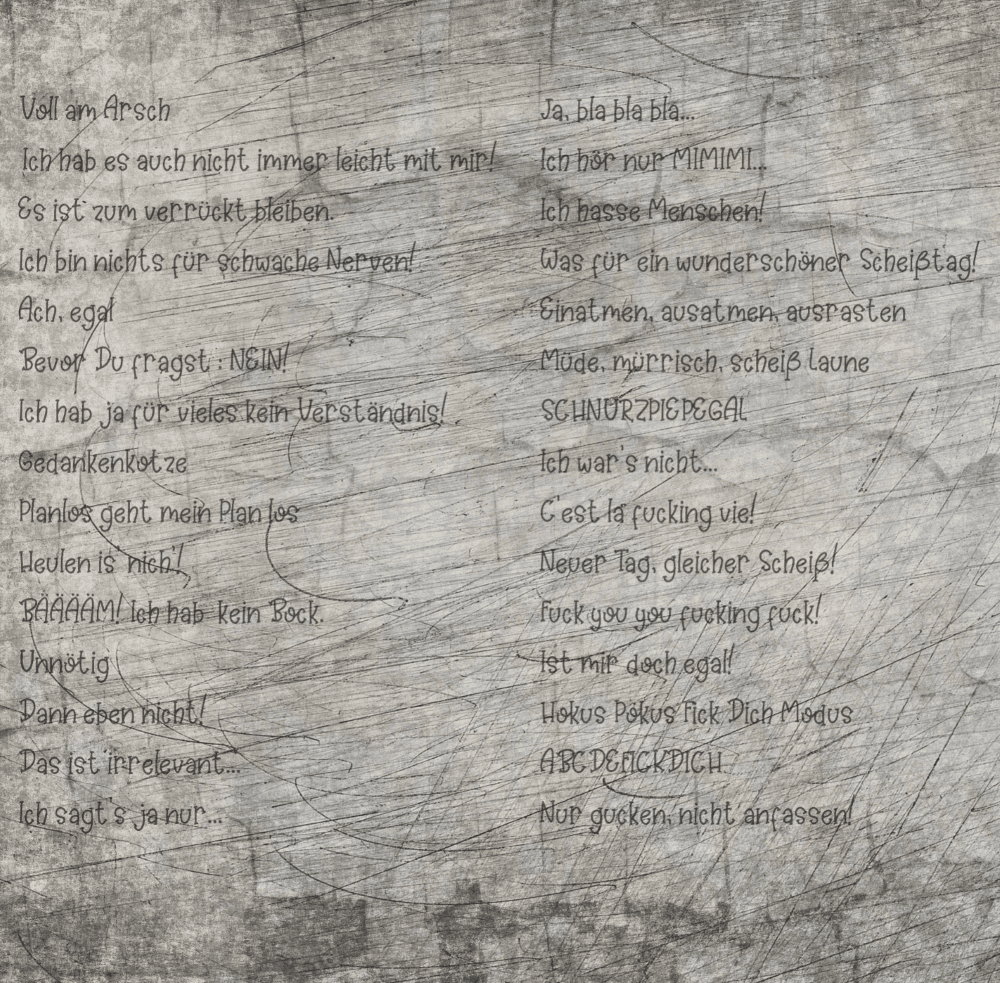 Voll am Arsch
Ich hab es auch nicht immer leicht mit mir!
Es ist zum verrückt bleiben.
Ich bin nichts für schwache Nerven!
Ach, egal
Bevor Du fragst : NEIN!
Ich hab ja für vieles kein Verständnis!
Gedankenkotze
Planlos geht mein Plan los
Heulen is nich'!
BÄÄÄÄM! Ich hab kein Bock.
Unnötig
Dann eben nicht!
Das ist irrelevant...
Ich sagt's ja nur...
Ja, bla bla bla...
Ich hör nur MIMIMI...
Ich hasse Menschen!
Was für ein wunderschöner Scheißtag!
Einatmen, ausatmen, ausrasten
Müde, mürrisch, scheiß Laune
SCHNURZPIEPEGAL
Ich war's nicht...
C'est la fucking vie!
Neuer Tag, gleicher Scheiß!
Fuck you you fucking fuck!
Ist mir doch egal!
Hokus Pokus Fick Dich Modus
ABCDEFICKDICH
Nur gucken, nicht anfassen!